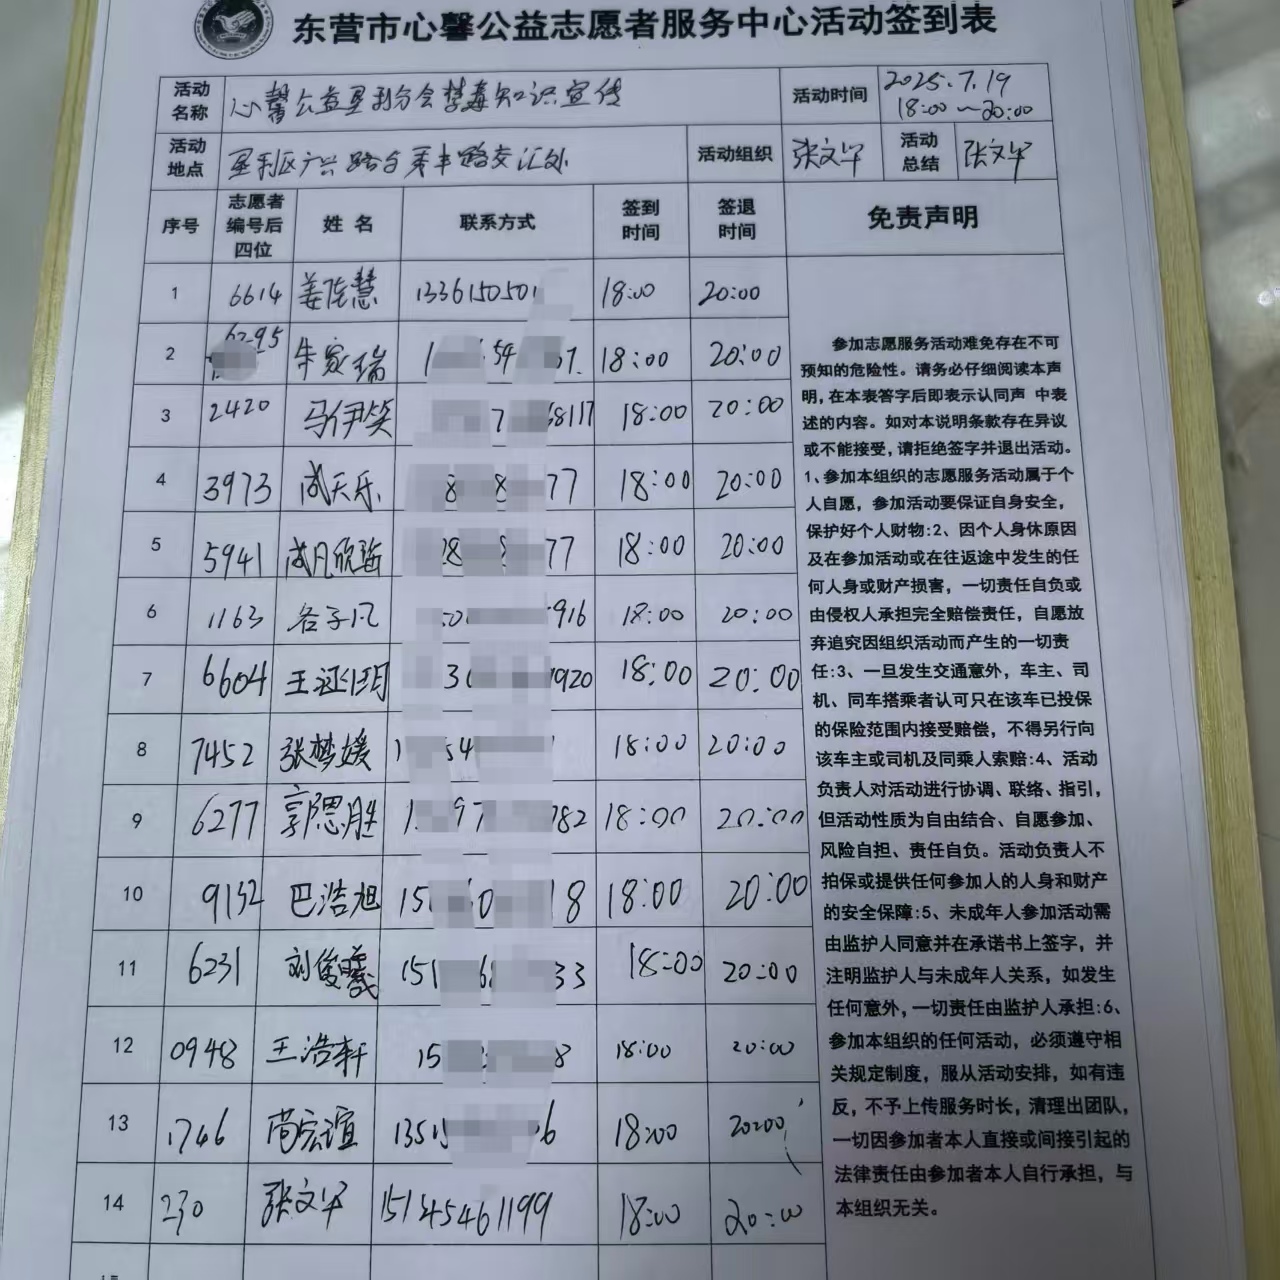 东营市心馨公益志愿者服务中心活动签到表
活动名称 心馨公益垦利分会禁毒知识宣传 活动时间 2025.7.19 18:00~20:00
活动地点 垦利区广兴路与 路交汇处 活动组织 张文华 活动总结 张文华
序号 志愿者编号后四位 姓名 联系方式 签到时间 签退时间 免责声明
1 6614 姜陆慧 1336150501 18:00 20:00
2 6295 牛家瑞 1 54 1. 18:00 20:00
3 2420 马伊笑 7 68117 18:00 20:00
4 3973 成天乐 8 8 77 18:00 20:00
5 5941 成凡欣 28 77 18:00 20:00
6 1163 子凡 50 916 18:00 20:00
7 6604 王 3 920 18:00 20:00
8 7452 张梦媛 1 54 18:00 20:00
9 6277 郭恩胜 1 97 782 18:00 20:00
10 9132 巴浩旭 15 0 8 18:00 20:00
11 6231 刘俊曦 151 6 33 18:00 20:00
12 0948 王浩轩 15 8 18:00 20:00
13 1746 苟宏谊 1351 6 18:00 20:00
14 230 张文华 15145461199 18:00 20:00
参加志愿服务活动难免存在不可
预知的危险性。请务必仔细阅读本声
明，在本表签字后即表示认同声 中表
述的内容。如对本说明条款存在异议
或不能接受，请拒绝签字并退出活动。
1、参加本组织的志愿服务活动属于个
人自愿，参加活动要保证自身安全，
保护好个人财物:2、因个人身休原因
及在参加活动或在往返途中发生的任
何人身或财产损害，一切责任自负或
由侵权人承担完全赔偿责任，自愿放
弃追究因组织活动而产生的一切责
任:3、一旦发生交通意外，车主、司
机、同车搭乘者认可只在该车已投保
的保险范围内接受赔偿，不得另行向
该车主或司机及同乘人索赔:4、活动
负责人对活动进行协调、联络、指引，
但活动性质为自由结合、自愿参加、
风险自担、责任自负。活动负责人不
拍保或提供任何参加人的人身和财产
的安全保障:5、未成年人参加活动需
由监护人同意并在承诺书上签字，并
注明监护人与未成年人关系，如发生
任何意外，一切责任由监护人承担:6、
参加本组织的任何活动，必须遵守相
关规定制度，服从活动安排，如有违
反，不予上传服务时长，清理出团队，
一切因参加者本人直接或间接引起的
法律责任由参加者本人自行承担，与
本组织无关。